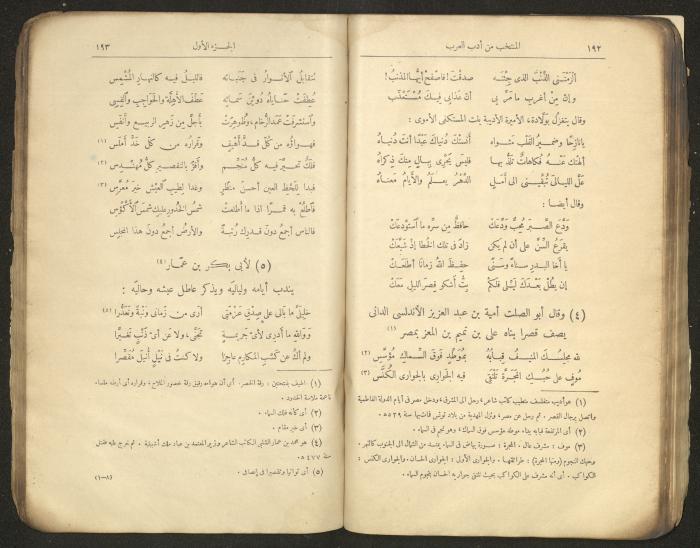 ١٩٢
المنتخب من أدب العرب
ألزمتني الذنب الذي جئته
صدقت ! فاصفح أيها المذنب !
وإن من أغرب ما مر بي
أن عذابي فيك مستعذب
وقال يتغزل بولادة، الأميرة الأديبة بنت المستكفى الأموى :
يا نازحا وضمير القلب مثواه
أنستك دنياك عبدا أنت دنياه
ألهتك عنه فكاهات تلذ بها
فليس يجرى ببال منك ذكراه
عل الليالى تبقينى الى أمل
الدهر يعلم والأيام معناه
وقال أيضا :
ودع الصبر محب ودعك
حافظ من سره ما استودعك
يقرع السن على أن لم يكن
زاد فى تلك الخطا إذ شيعك
يا أخا البدر سناء وسنى
حفظ الله زمانا أطلعك
إن يطل بعدك ليلى فلكم
بت أشكو قصر الليل معك
(٤) وقال أبو الصلت أمية بن عبد العزيز الأندلسى الدانى
يصف قصرا بناه على بن تميم بن المعز بمصر (١)
لله مجلسك المنيف قبابه
بموطد فوق السماك مؤسس (٢)
موف على حبك المجرة تلتقى
فيه الجوارى بالجوارى الكنس (٣)
(١) هو أديب متفلسف متطبب كاتب شاعر، رحل الى المشرق، ودخل مصر فى أيام الدولة الفاطمية
واتصل برجال القصر . ثم رحل عن مصر، ونزل المهدية من بلاد تونس فمات بها سنة ٥٢٩ ه
(٢) أى المرتفعة قبابه ببناء موطد مؤسس فوق السماك، وهو نجم فى السماء .
(٣) موف : مشرف عال . المجرة : صورة بياض فى السماء يمتد من الشمال الى الجنوب كالنهر .
وحبك النجوم (ومنها المجرة) : طرائقها . والجوارى الأولى : الجوارى الحسان . والجوارى الكنس :
الكواكب . أى أنه مشرف على الكواكب بحيث تلتقى جواريه الحسان بنجوم السماء .
الجزء الأول
١٩٣
تتقابل الأنوار فى جنباته
فالليل فيه كالنهار المشمس
عطفت حناياه دوين سمائه
عطف الأهلة والحواجب والقسى
واستشرفت عمد الرخام وظوهرت
بأجل من زهر الربيع وأنفس
فهواؤه من كل قد أهيف
وقراره من كل خد أملس (١)
فلك تحير فيه كل منجم
وأقر بالتقصير كل مهندس (٢)
فبدا للحظ العين أحسن منظر
وغدا لطيب العيش خير معرس (٣)
فاطلع به قمرا اذا ما أطلعت
شمس الخدور عليك شمس الأكؤس
فالناس أجمع دون قدرك رتبة
والأرض أجمع دون هذا المجلس
(٥) لأبى بكر بن عمار (٤)
يندب أيامه ولياليه ويذكر عاطل عيشه وحاليه :
خليلى ما بالى على صدق عزمتى
أرى من زمانى ونية وتعذرا (٥)
ووالله ما أدرى لأى جريمة
تجنى، ولا عن أى ذنب تغيرا
ولم أك عن كسب المكارم عاجزا
ولا كنت فى نيل أنيل مقصرا
(١) الهيف بفتحتين : رقة الخصر . أى أن هواءه رقيق رقة خصور الملاح، وقراره أى أرضه ملساء
ناعمة ملاسة الخدود .
(٢) أى كأنه فلك السماء .
(٣) أى خير مقام .
(٤) هو محمد بن عمار الشلبى الكاتب الشاعر وزير المعتمد بن عباد ملك أشبيلية . ثم خرج عليه فقتل
سنة ٤٧٧ ه
(٥) أى توانيا وتقصيرا فى إنصافى .
(١-٨)